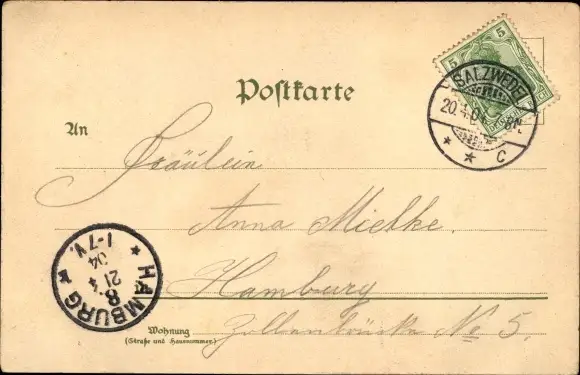 5 5
SALZWEDEL
20.4.04
C
Postkarte
An
Fräulein
Anna Mielke.
Hamburg
Wohnung
(Straße und Hausnummer)
Zollenbrücke No 5.
HAMBURG
8.
21 4
04
1-7V.